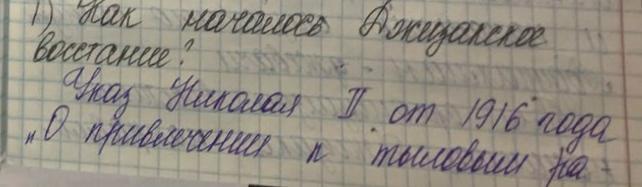 1) Как началось Джизакское
восстание?
Указ Николая II от 1916 года
„О привлечении к тыловым ра-